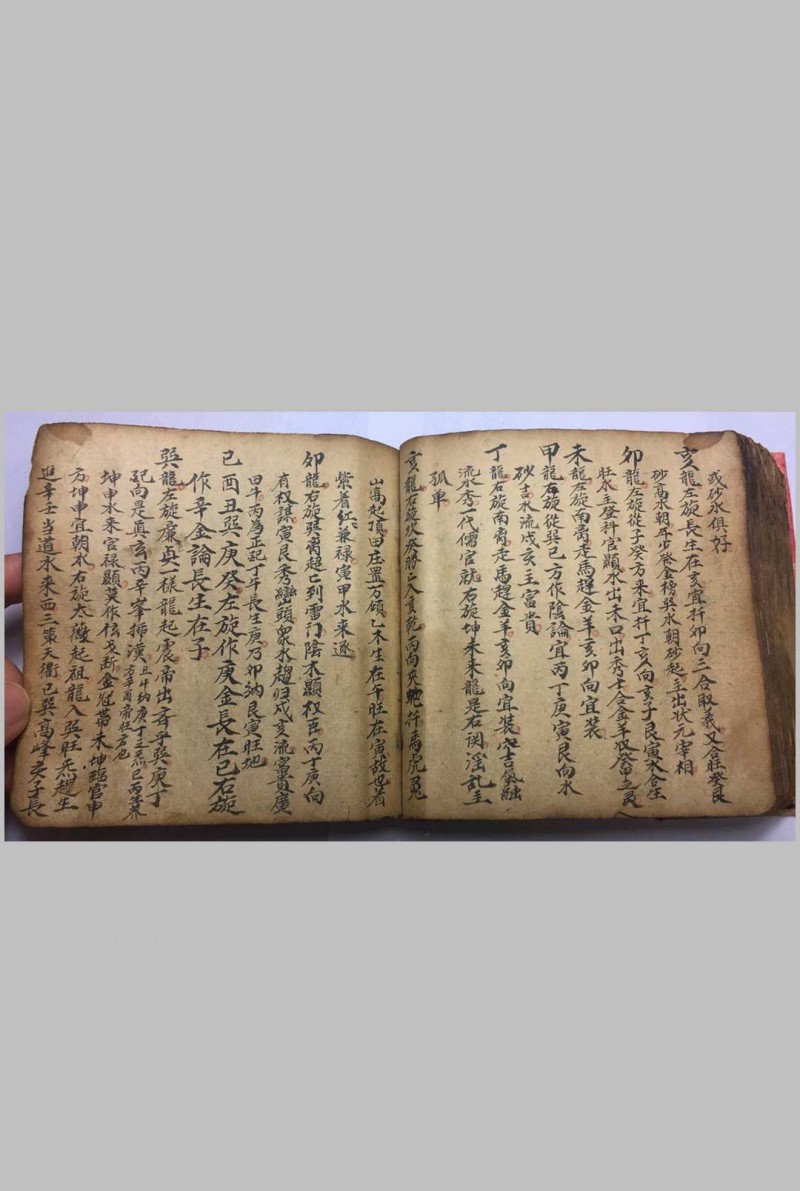 或砂水俱好
亥龍左旋長生在亥宜扦卯向三合取義又合旺癸艮
砂高水朝年少登金榜巽水朝砂起主出狀元宰相
卯龍左旋從子癸方來宜扦丁亥向亥子艮寅水合生
旺水主登科官顯水出未口出秀士合金羊收癸甲之灵
未龍左旋南离走馬趕金羊亥卯向宜裝
甲龍右旋從巽巳方作陰論宜丙丁庚寅艮向水
砂吉水流戌亥主富貴
丁龍右旋南离走馬趕金羊亥卯向宜装穴吉氣融
流水秀一代儒官就右旋坤未來龍是右関淫乱主
孤单
亥龍右旋坎癸勝亡入亥乾丙向灵蛇扦馬虎
山高起頂田庄置万傾乙木生在午旺在寅故也着
紫着紅兼禄寅甲水來逐
卯龍右旋癸离趕亡列雷门陰木顯权臣丙丁庚向
有权謀寅艮秀巒頭眾水趨归戍亥流富貴慶
田牛丙為正記丁午長生庚乃卯納艮寅旺地
巳酉丑巽庚癸左旋作庚金長在巳右旋
作辛金論長生在子
巽龍左旋廉貞一樣龍起震帝出齐乎巽庚丁
記向是眞亥丙辛峯掃漢
坤申水來官禄顯莫作絃戈断金冠帶未坤臨官申
方坤申宜朝水右旋太微起祖龍入巽旺炁趕生
進辛壬当道水來西三策天衢巳巽高峰亥子長